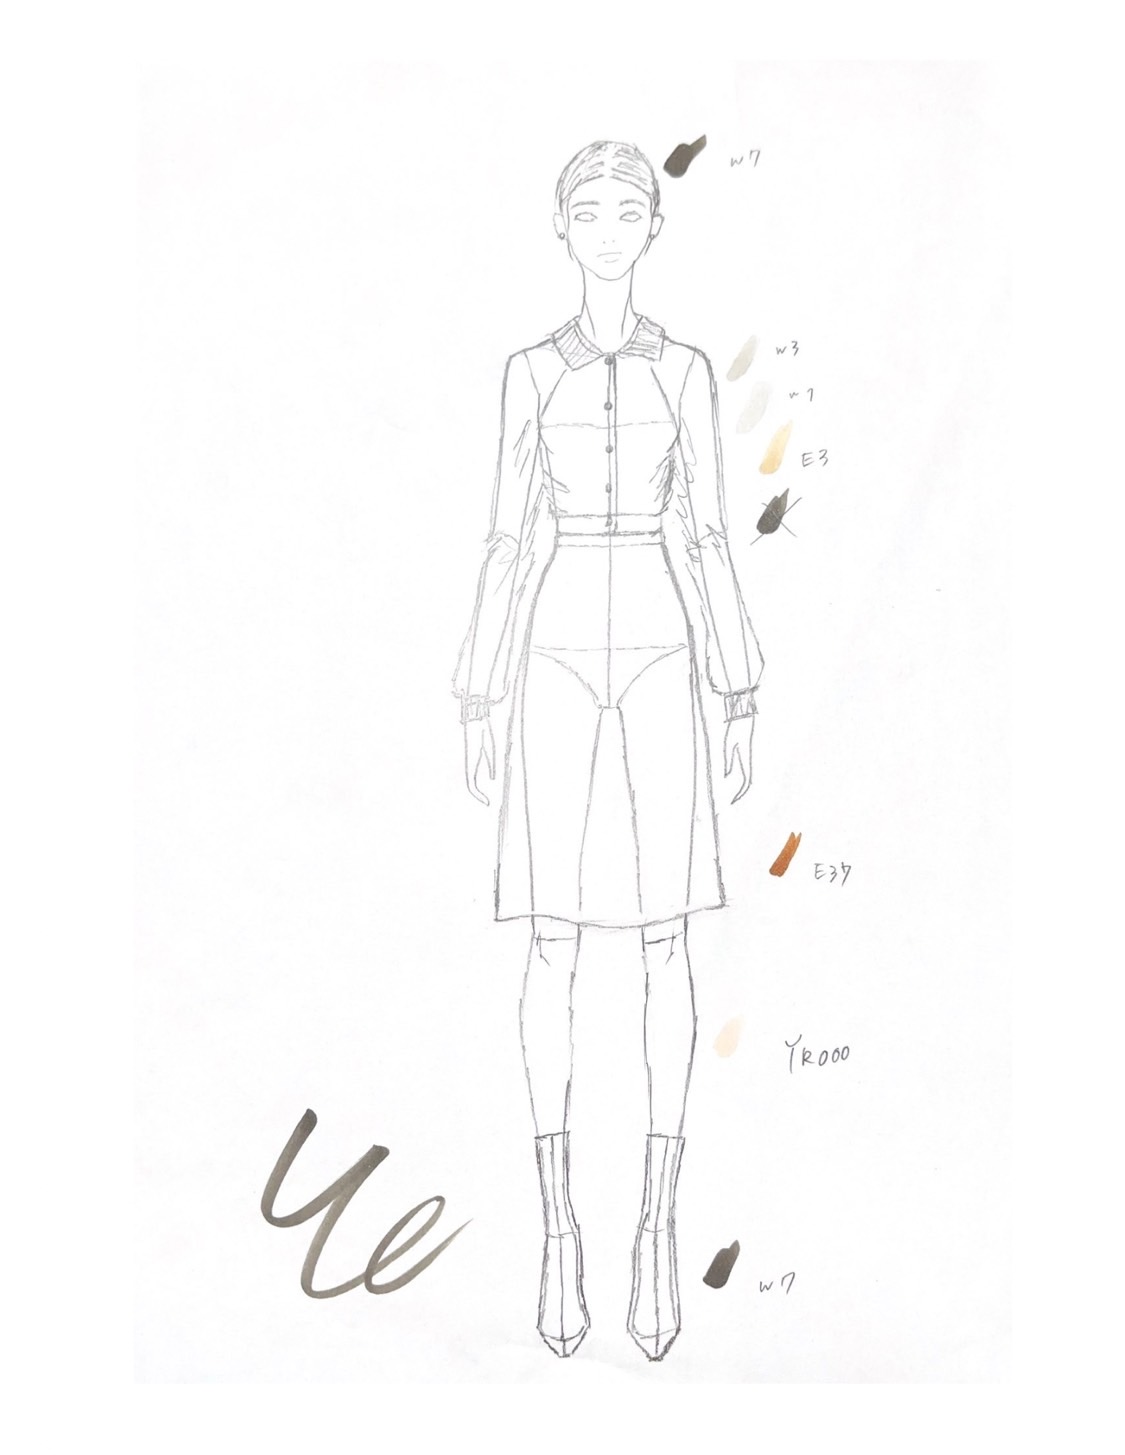 W7
W3
W1
E3
E37
YR000
W7
Ye